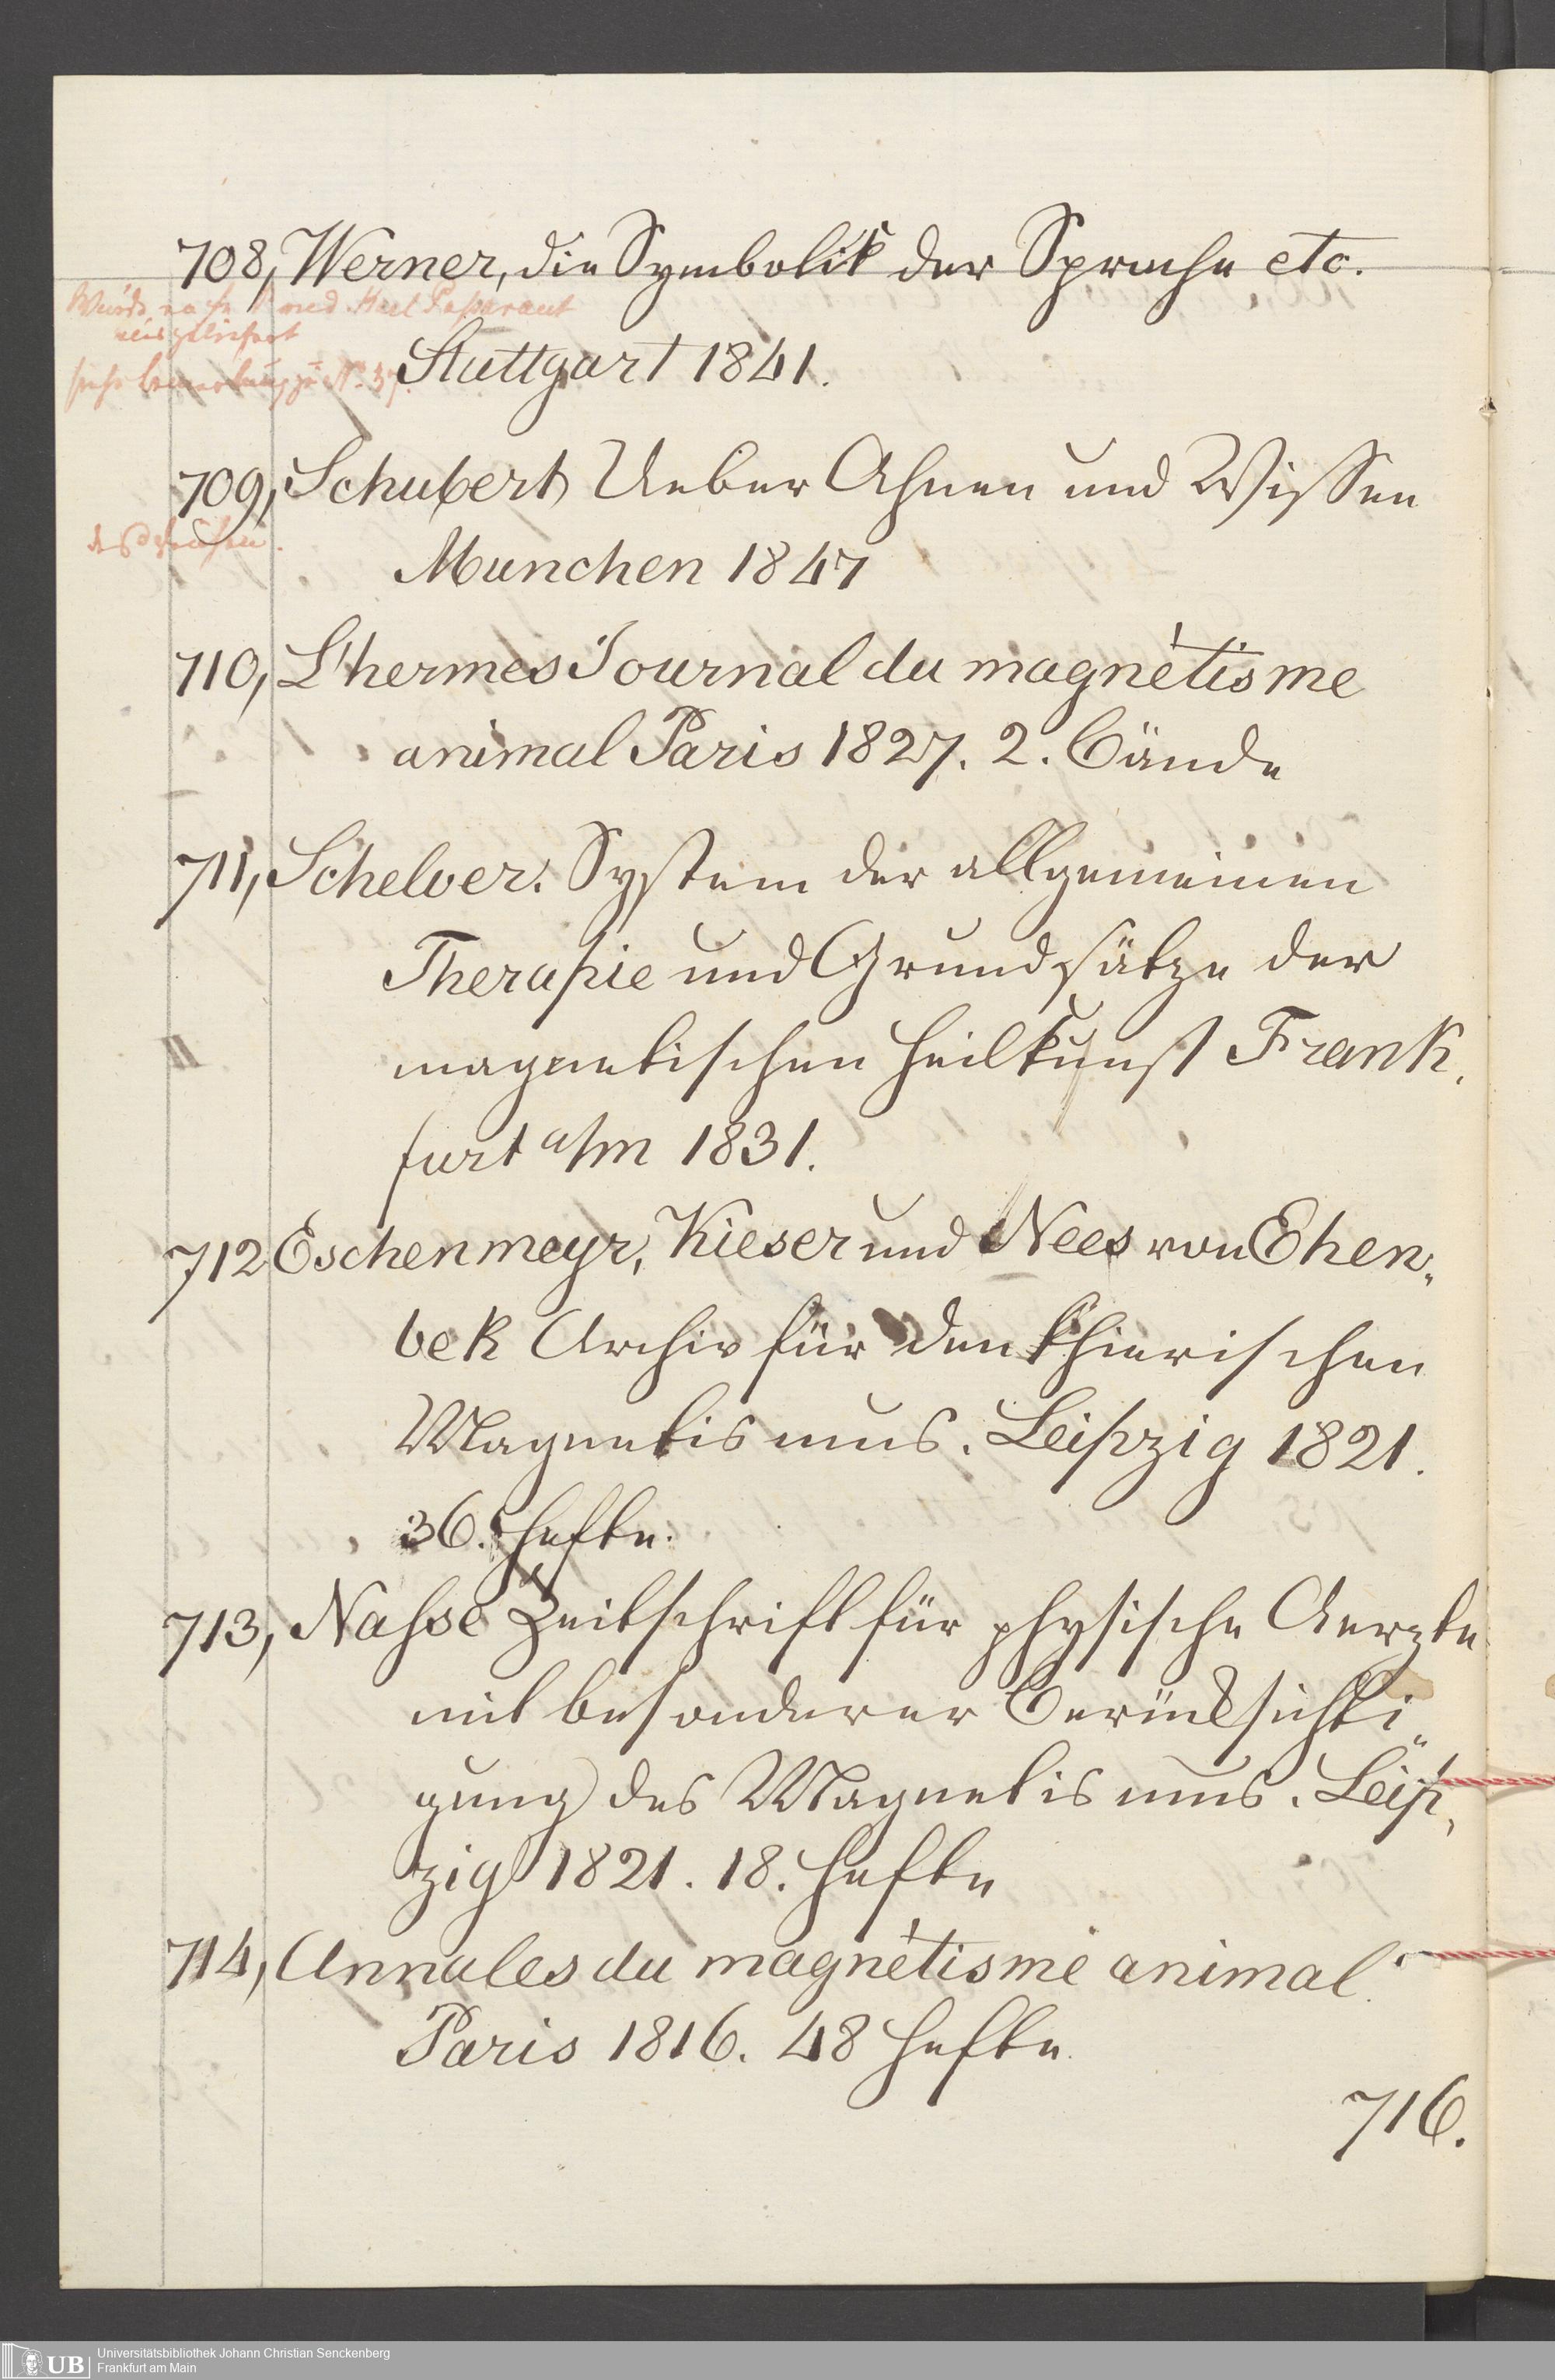 708, Werner, die Symbolik der Sprache etc.
Wurde nach
ausgeliefert
siehe Bemerkung zu No. 37.
Stuttgart 1841.
709, Schubert, Ueber Ahnen und Wissen
desgleichen.
Munchen 1847
710, L'hermes Journal du magnètisme
animal Paris 1827. 2. Bände
711, Schelver. System der allgemeinen
Therapie und Grundsätze der
magnetischen Heilkunst Frank,
furt a/m 1831.
712 Eschenmeyr, Kieser und Nees von Ehen„
bek Archiv für den thierischen
Magnetismus. Leipzig 1821.
36. Hefte.
713, Nasse Zeitschrift für physische Aerzte
mit besonderer Berücksichti„
gung des Magnetismus. Leip,
zig 1821. 18. Hefte
714, Annales du magnètisme animal.
Paris 1816. 48 Hefte.
716.
Universitätsbibliothek Johann Christian Senckenberg
Frankfurt am Main
UB